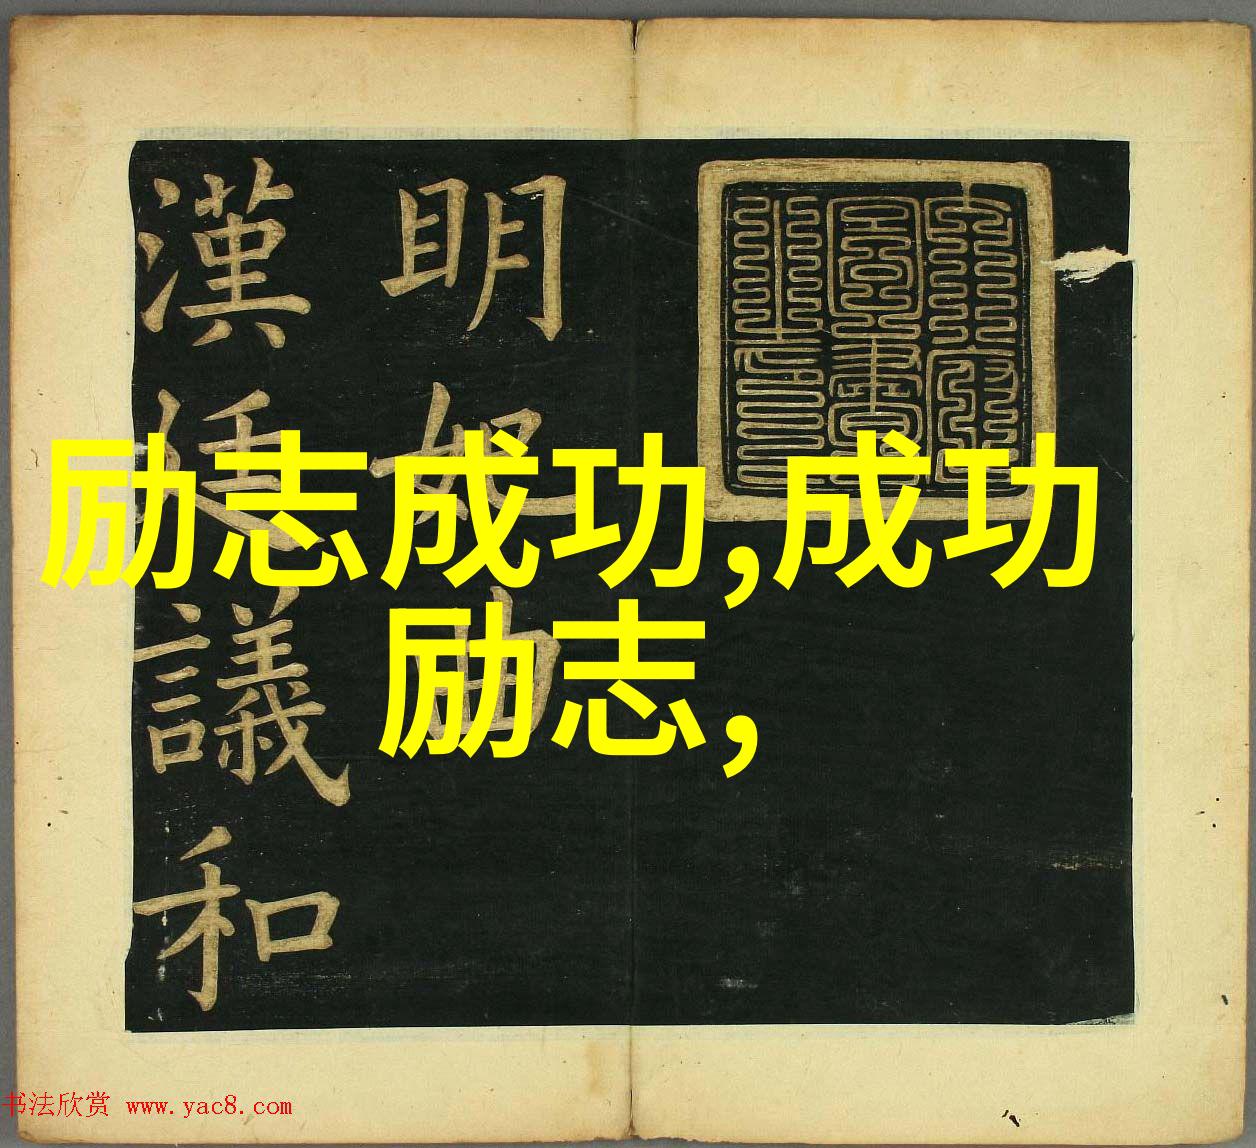 励志成功,成功
励志,
明妃曲
漢廷議和
书法欣赏 www.yac8.com